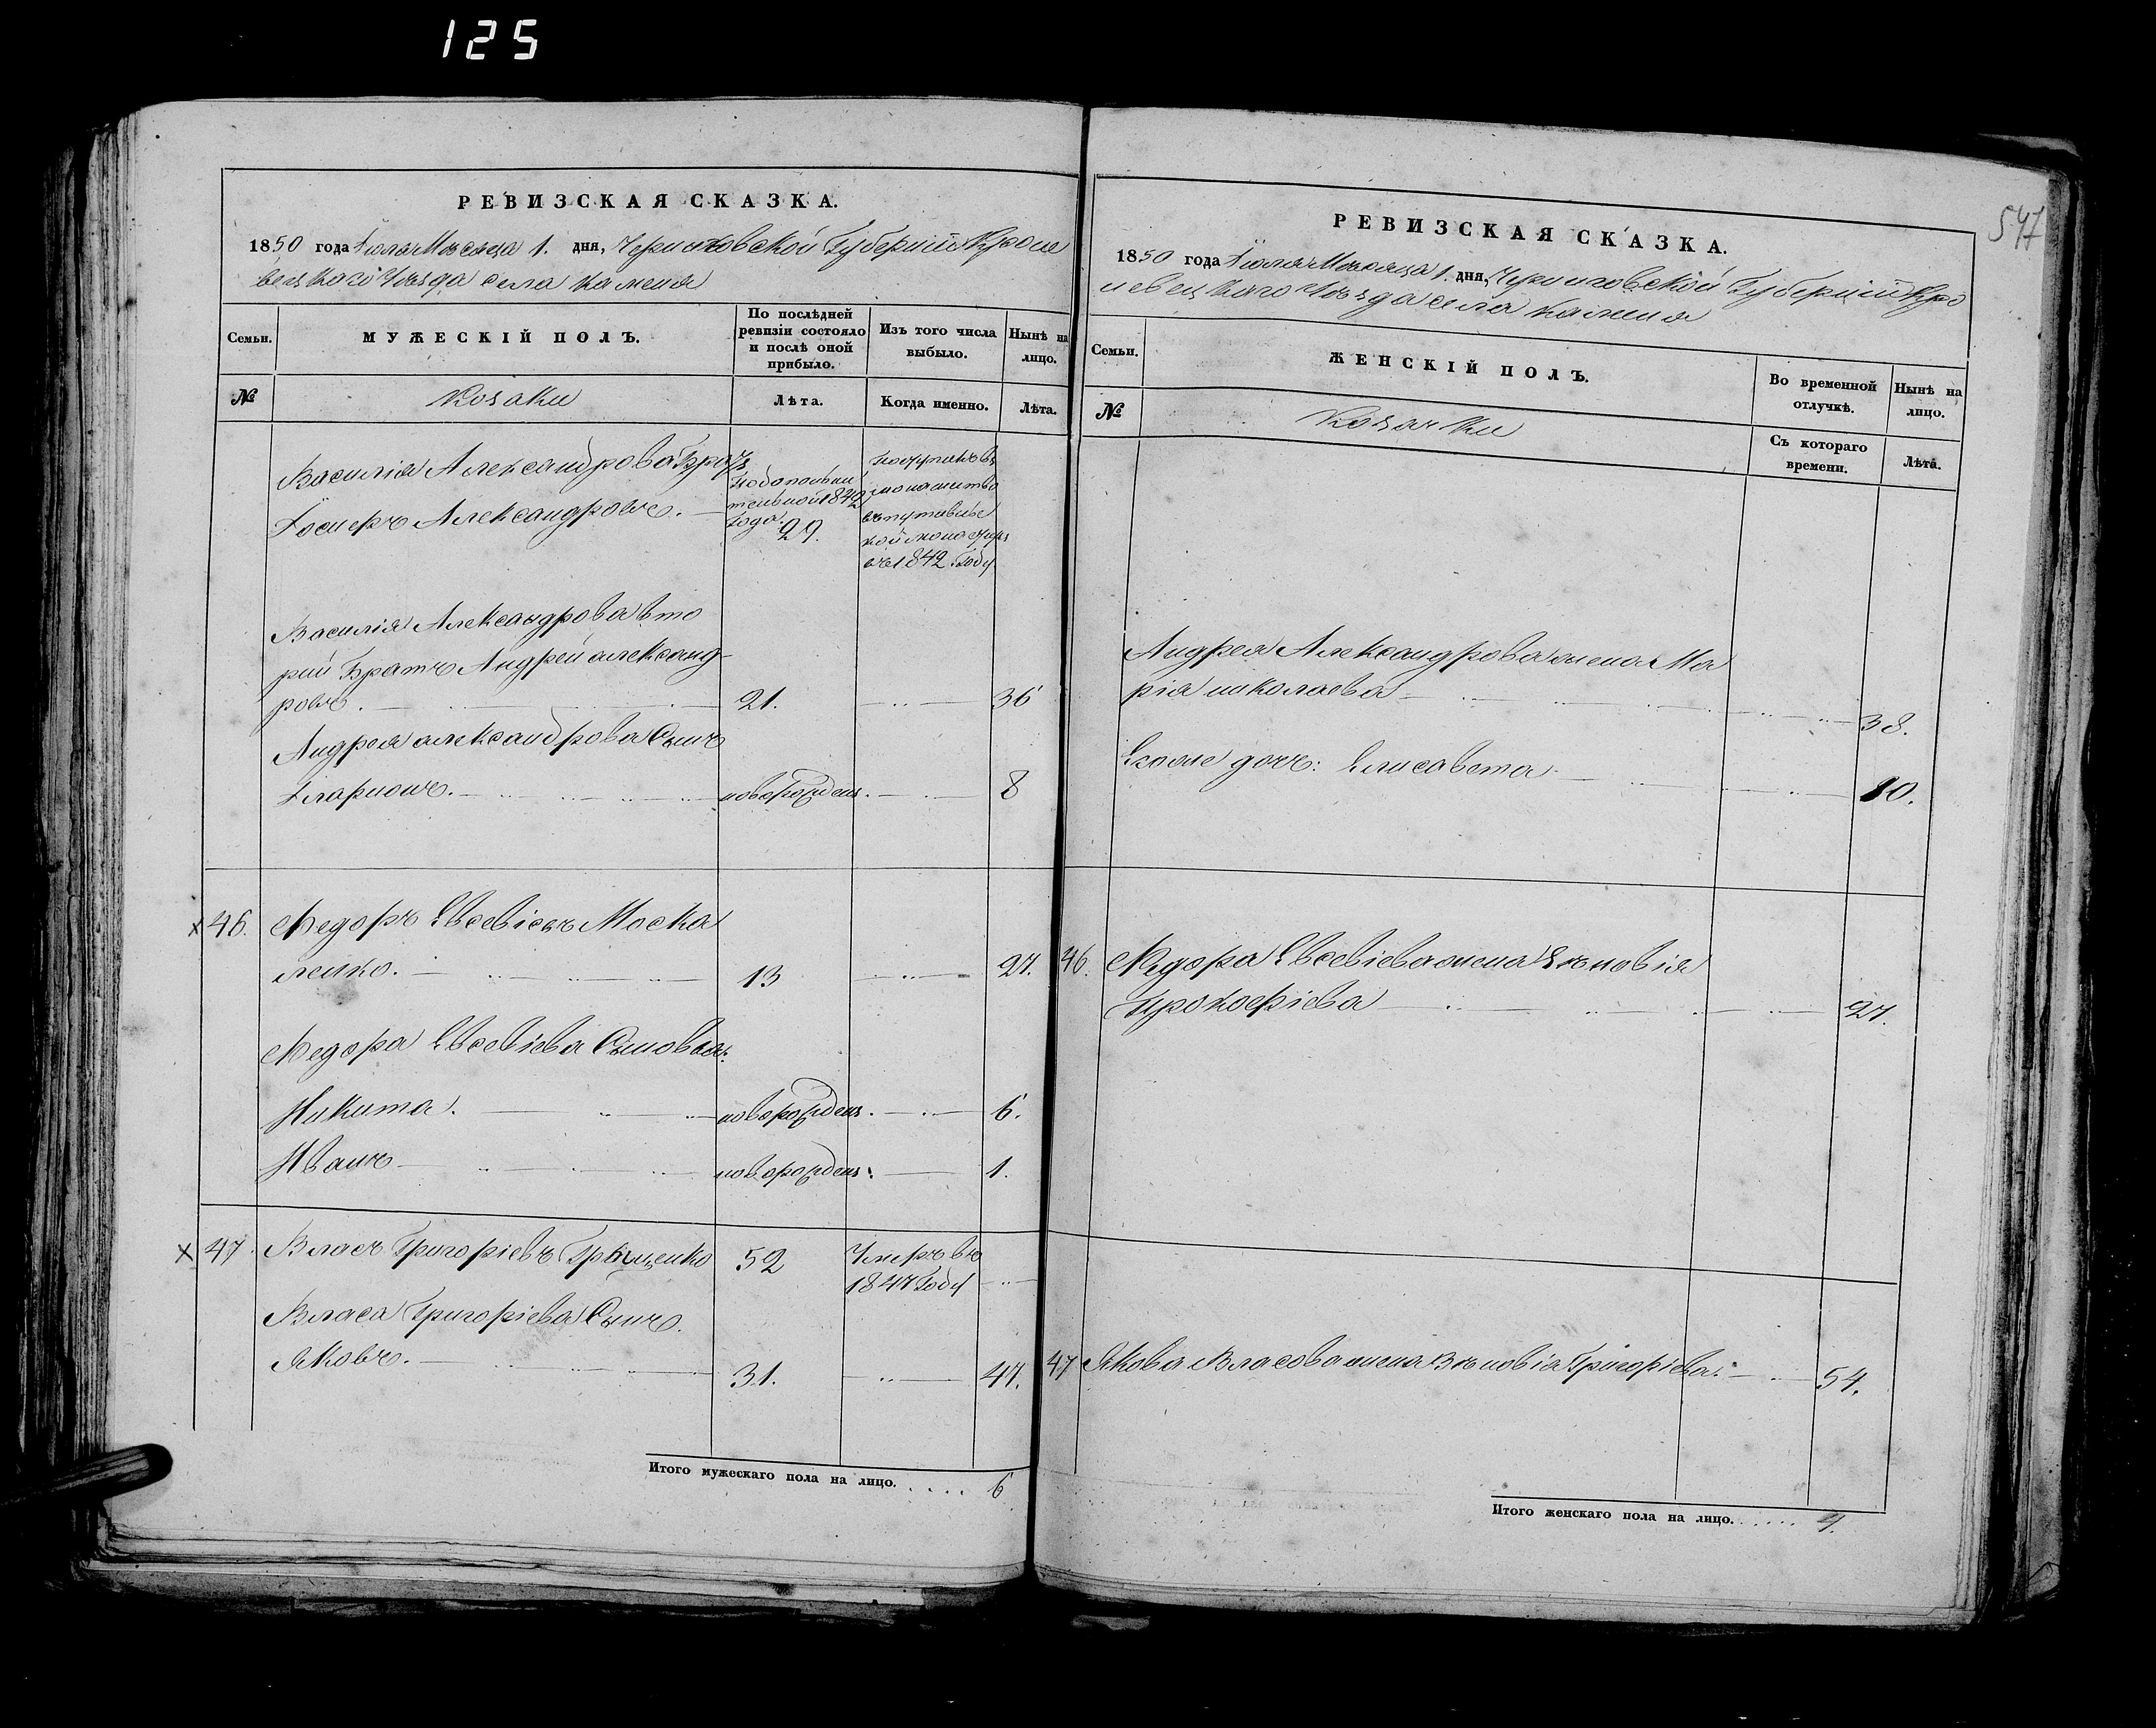 125
РЕВИЗСКАЯ СКАЗКА.
1850 года Іюля Мѣсяца 1. дня, Черниговской Губерніи Кроле
вецкаго Уѣзда села Каменя
Семьи.
МУЖЕСКІЙ ПОЛЪ.
По послѣдней
ревизіи состояло
и послѣ оной
прибыло.
Изъ того числа
выбыло.
Нынѣ на
лицо.
№
Козаки
Лѣта.
Когда именно.
Лѣта.
Василія Александрова Братъ
Александровъ.
1842
года.
29.
въ 1842 Году
Василія Александрова вто
рий Братъ Андрей александ-
ровъ. 21. 36
Андрея александрова Сынъ
Иларионъ. новорожден. 8
46. Федоръ Евсевіевъ Моска
ленко. 13 27.
Федора Евсевіева Сыновья:
Никита. новорожден. 6.
Иванъ новорожден: 1.
47. Власъ Григоріевъ Грищенко 52 Умеръ въ
1847 Году
Власа Григоріева Сынъ
Яковъ. 31. 47.
Итого мужескаго пола на лицо. 6
547
РЕВИЗСКАЯ СКАЗКА.
1850 года Іюля Мѣсяца 1. дня, Черниговской Губерніи Кро
левецкаго Уѣзда села Каменя
Семьи.
ЖЕНСКІЙ ПОЛЪ.
Во временной
отлучкѣ.
Нынѣ на
лицо.
№
Козачки
Съ котораго
времени.
Лѣта.
Андрея Александрова жена Ма
рія николаева 38.
Егоже дочь: Елисавета 10.
46. Федора Евсевіева жена
Прокофіева 27.
47 Якова Власова жена Григоріева. 54.
Итого женскаго пола на лицо. 4.